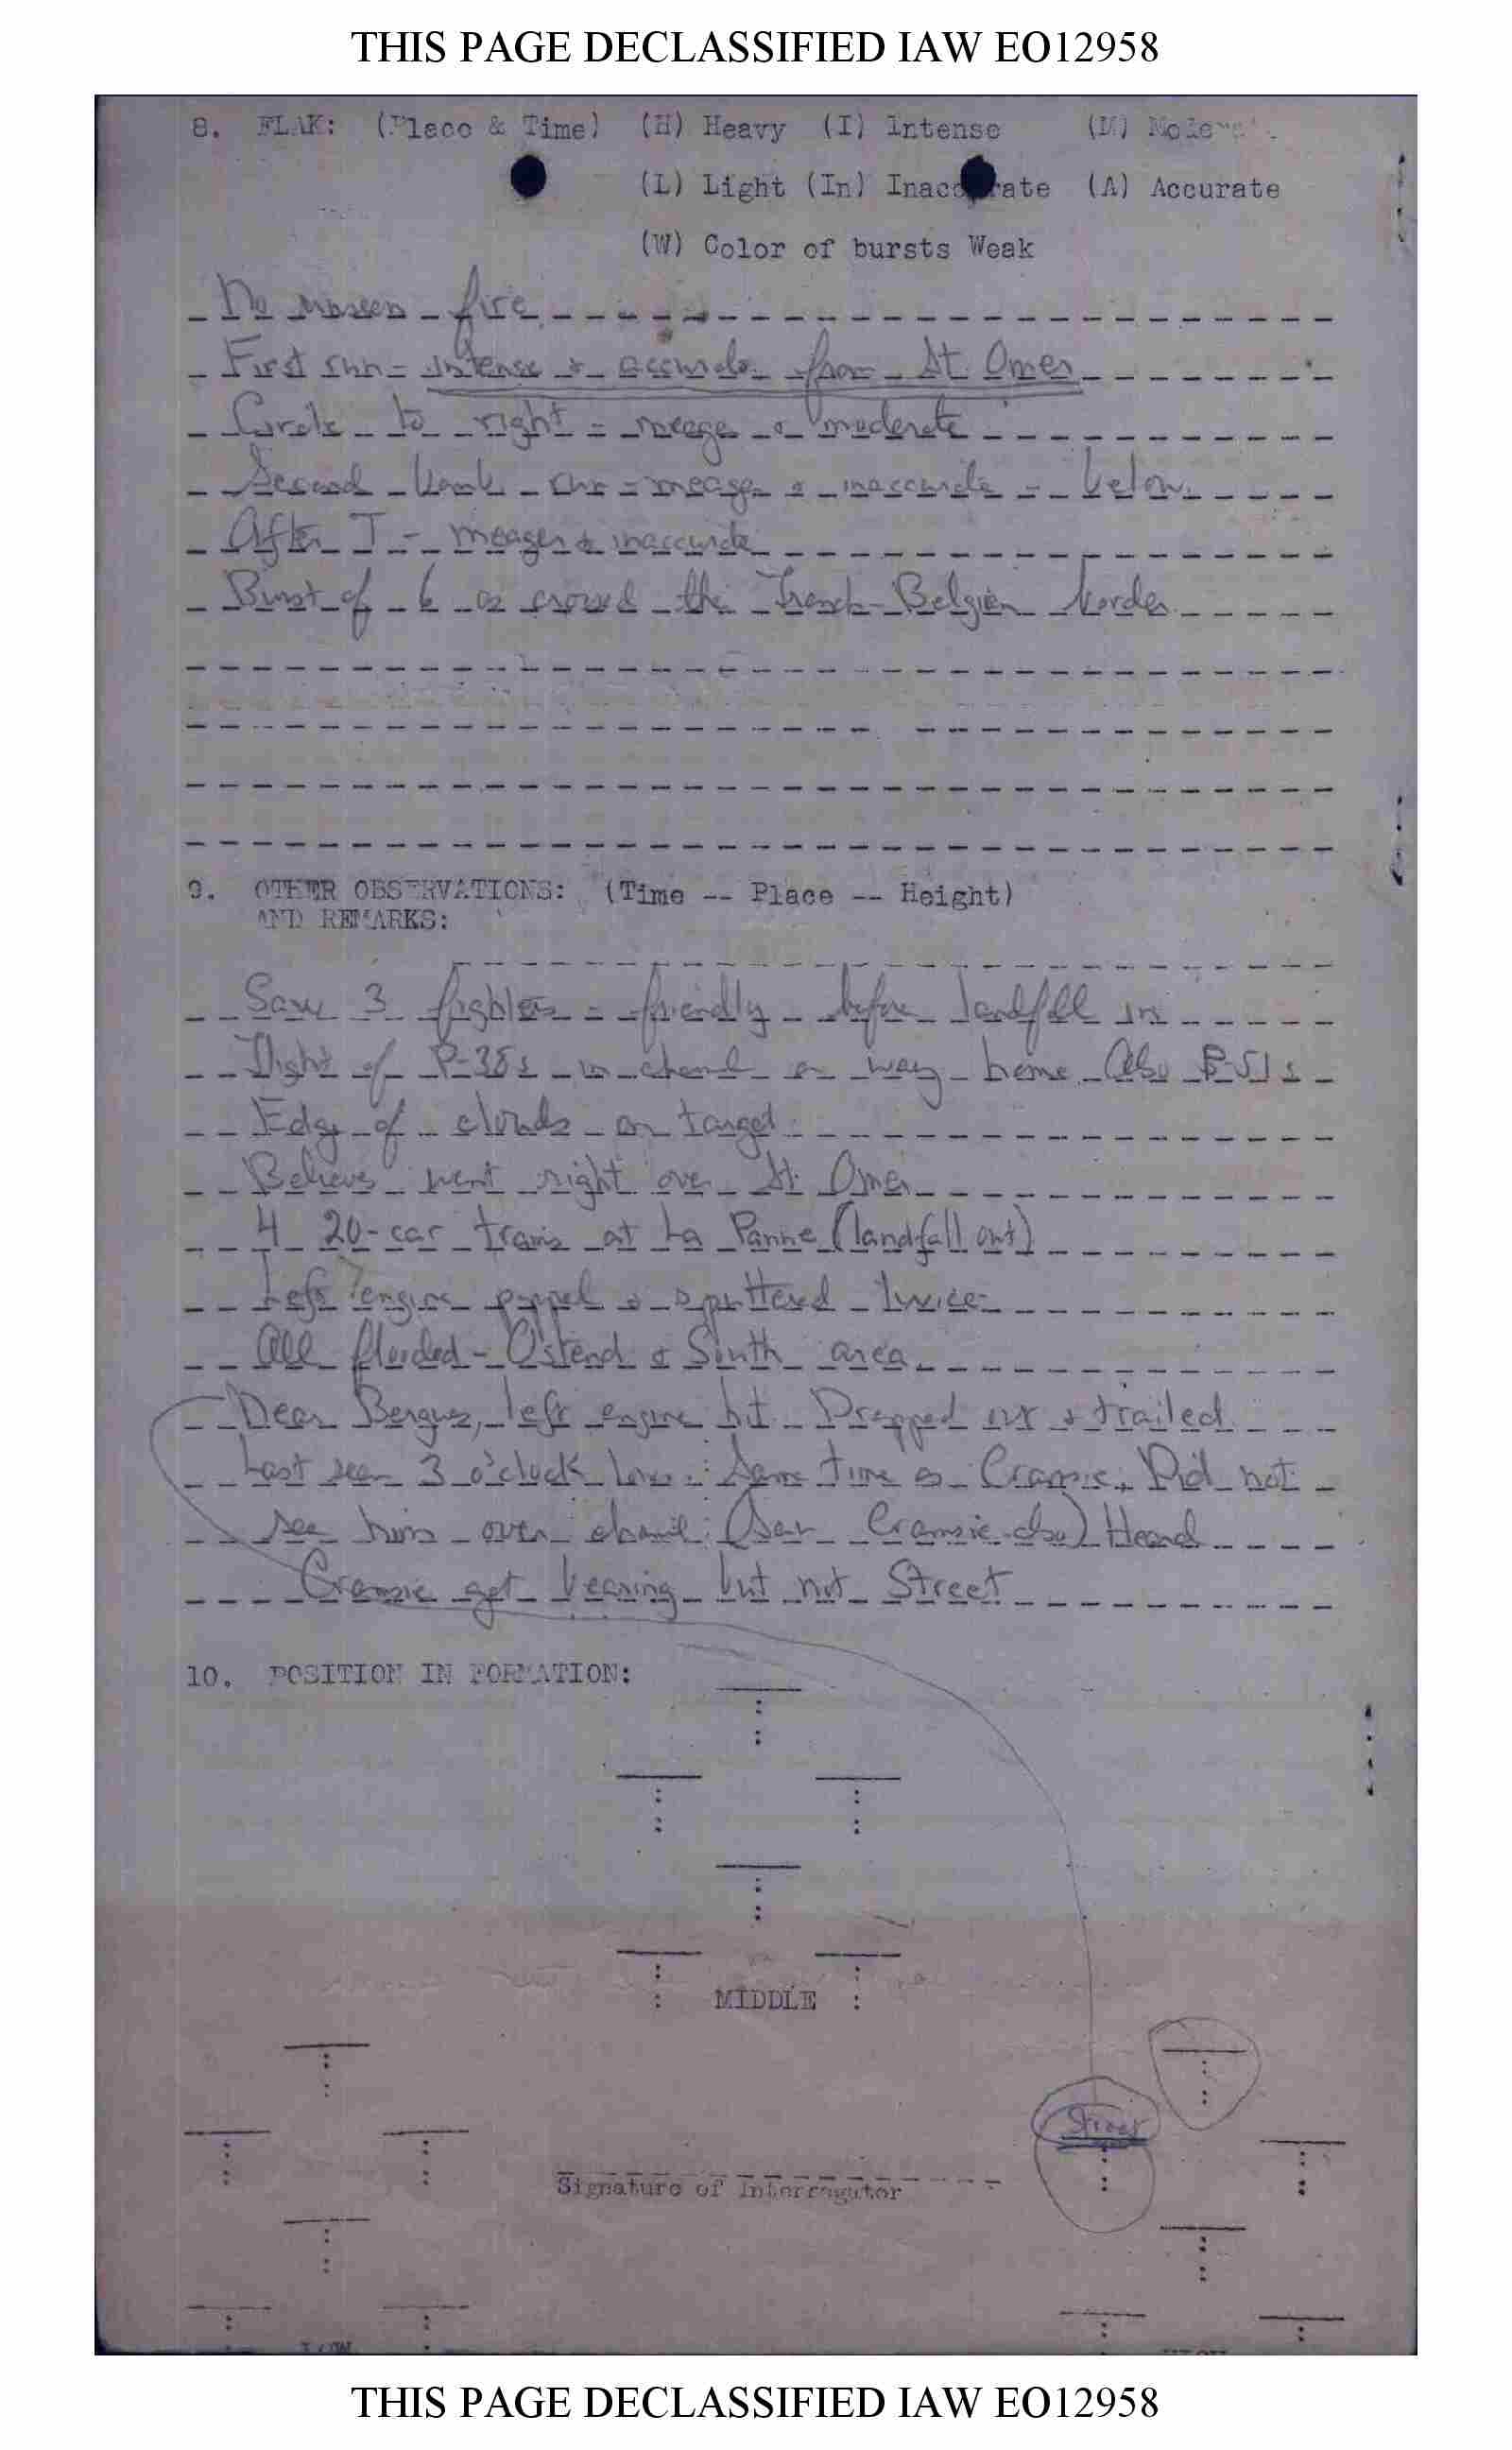 THIS PAGE DECLASSIFIED IAW EO12958
8. FLAK: (Place & Time) (H) Heavy (I) Intense (M)
(L) Light (In) Inaccurate (A) Accurate
(W) Color of bursts Weak
No unseen fire
First run - intense & accurate from St. Omer
Circle to right - meager & moderate
Second bomb run - meager & inaccurate - below
After T - meager & inaccurate
Burst of 6 as crossed the French-Belgian border
9. OTHER OBSERVATIONS: (Time -- Place -- Height)
AND REMARKS:
Saw 3 fighters - friendly before landfall in
Flight of P-38s in channel on way home. Also P-51s
Edge of clouds on target
Believe went right over St. Omer
4 20-car trains at La Panne (landfall out)
Left engine popped & sputtered twice
All flooded - Ostend & South area
Near Bergues, left engine hit. Dropped out & trailed
Last seen 3 o'clock low. Same time as Cramsie. Did not
see him over channel (Saw Cramsie also) Heard
Cramsie get bearing but not Street
10. POSITION IN FORMATION:
MIDDLE
Street
Signature of Interrogator
LOW
HIGH
THIS PAGE DECLASSIFIED IAW EO12958